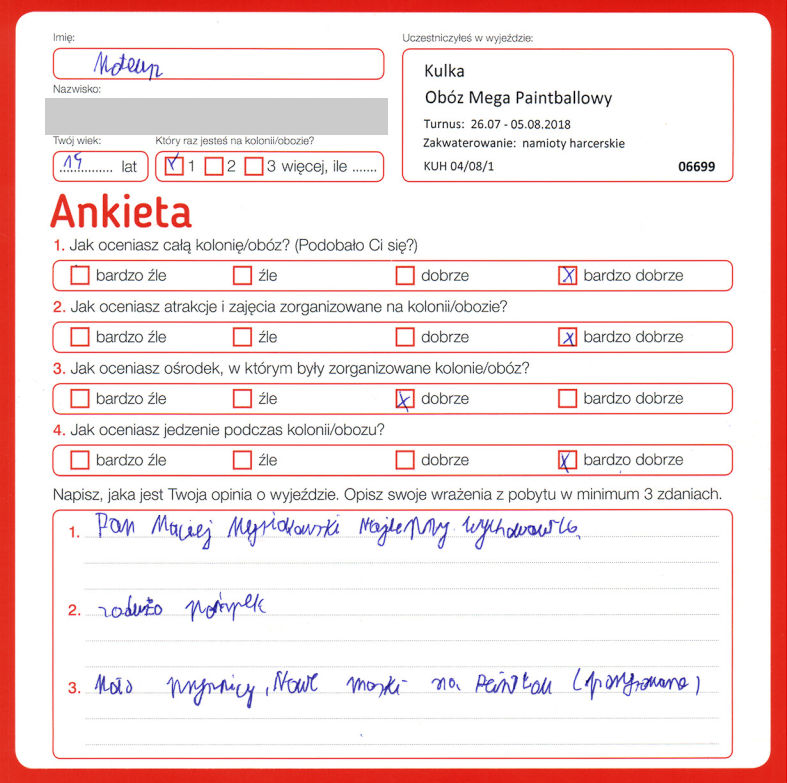 Imię:
Uczestniczyłeś w wyjeździe:
Kulka
Nazwisko:
Obóz Mega Paintballowy
Turnus: 26.07 - 05.08.2018
Twój wiek: Który raz jesteś na kolonii/obozie?
Zakwaterowanie: namioty harcerskie
14 lat 1 2 3 więcej, ile .......
KUH 04/08/1 06699
Ankieta
1. Jak oceniasz całą kolonię/obóz? (Podobało Ci się?)
bardzo źle źle dobrze X bardzo dobrze
2. Jak oceniasz atrakcje i zajęcia zorganizowane na kolonii/obozie?
bardzo źle źle dobrze X bardzo dobrze
3. Jak oceniasz ośrodek, w którym były zorganizowane kolonie/obóz?
bardzo źle źle X dobrze bardzo dobrze
4. Jak oceniasz jedzenie podczas kolonii/obozu?
bardzo źle źle dobrze X bardzo dobrze
Napisz, jaka jest Twoja opinia o wyjeździe. Opisz swoje wrażenia z pobytu w minimum 3 zdaniach.
1. Pan Maciej Najlepszy wychowawca.
2. zadużo
3. Mało prysznicy, Nowe maski na